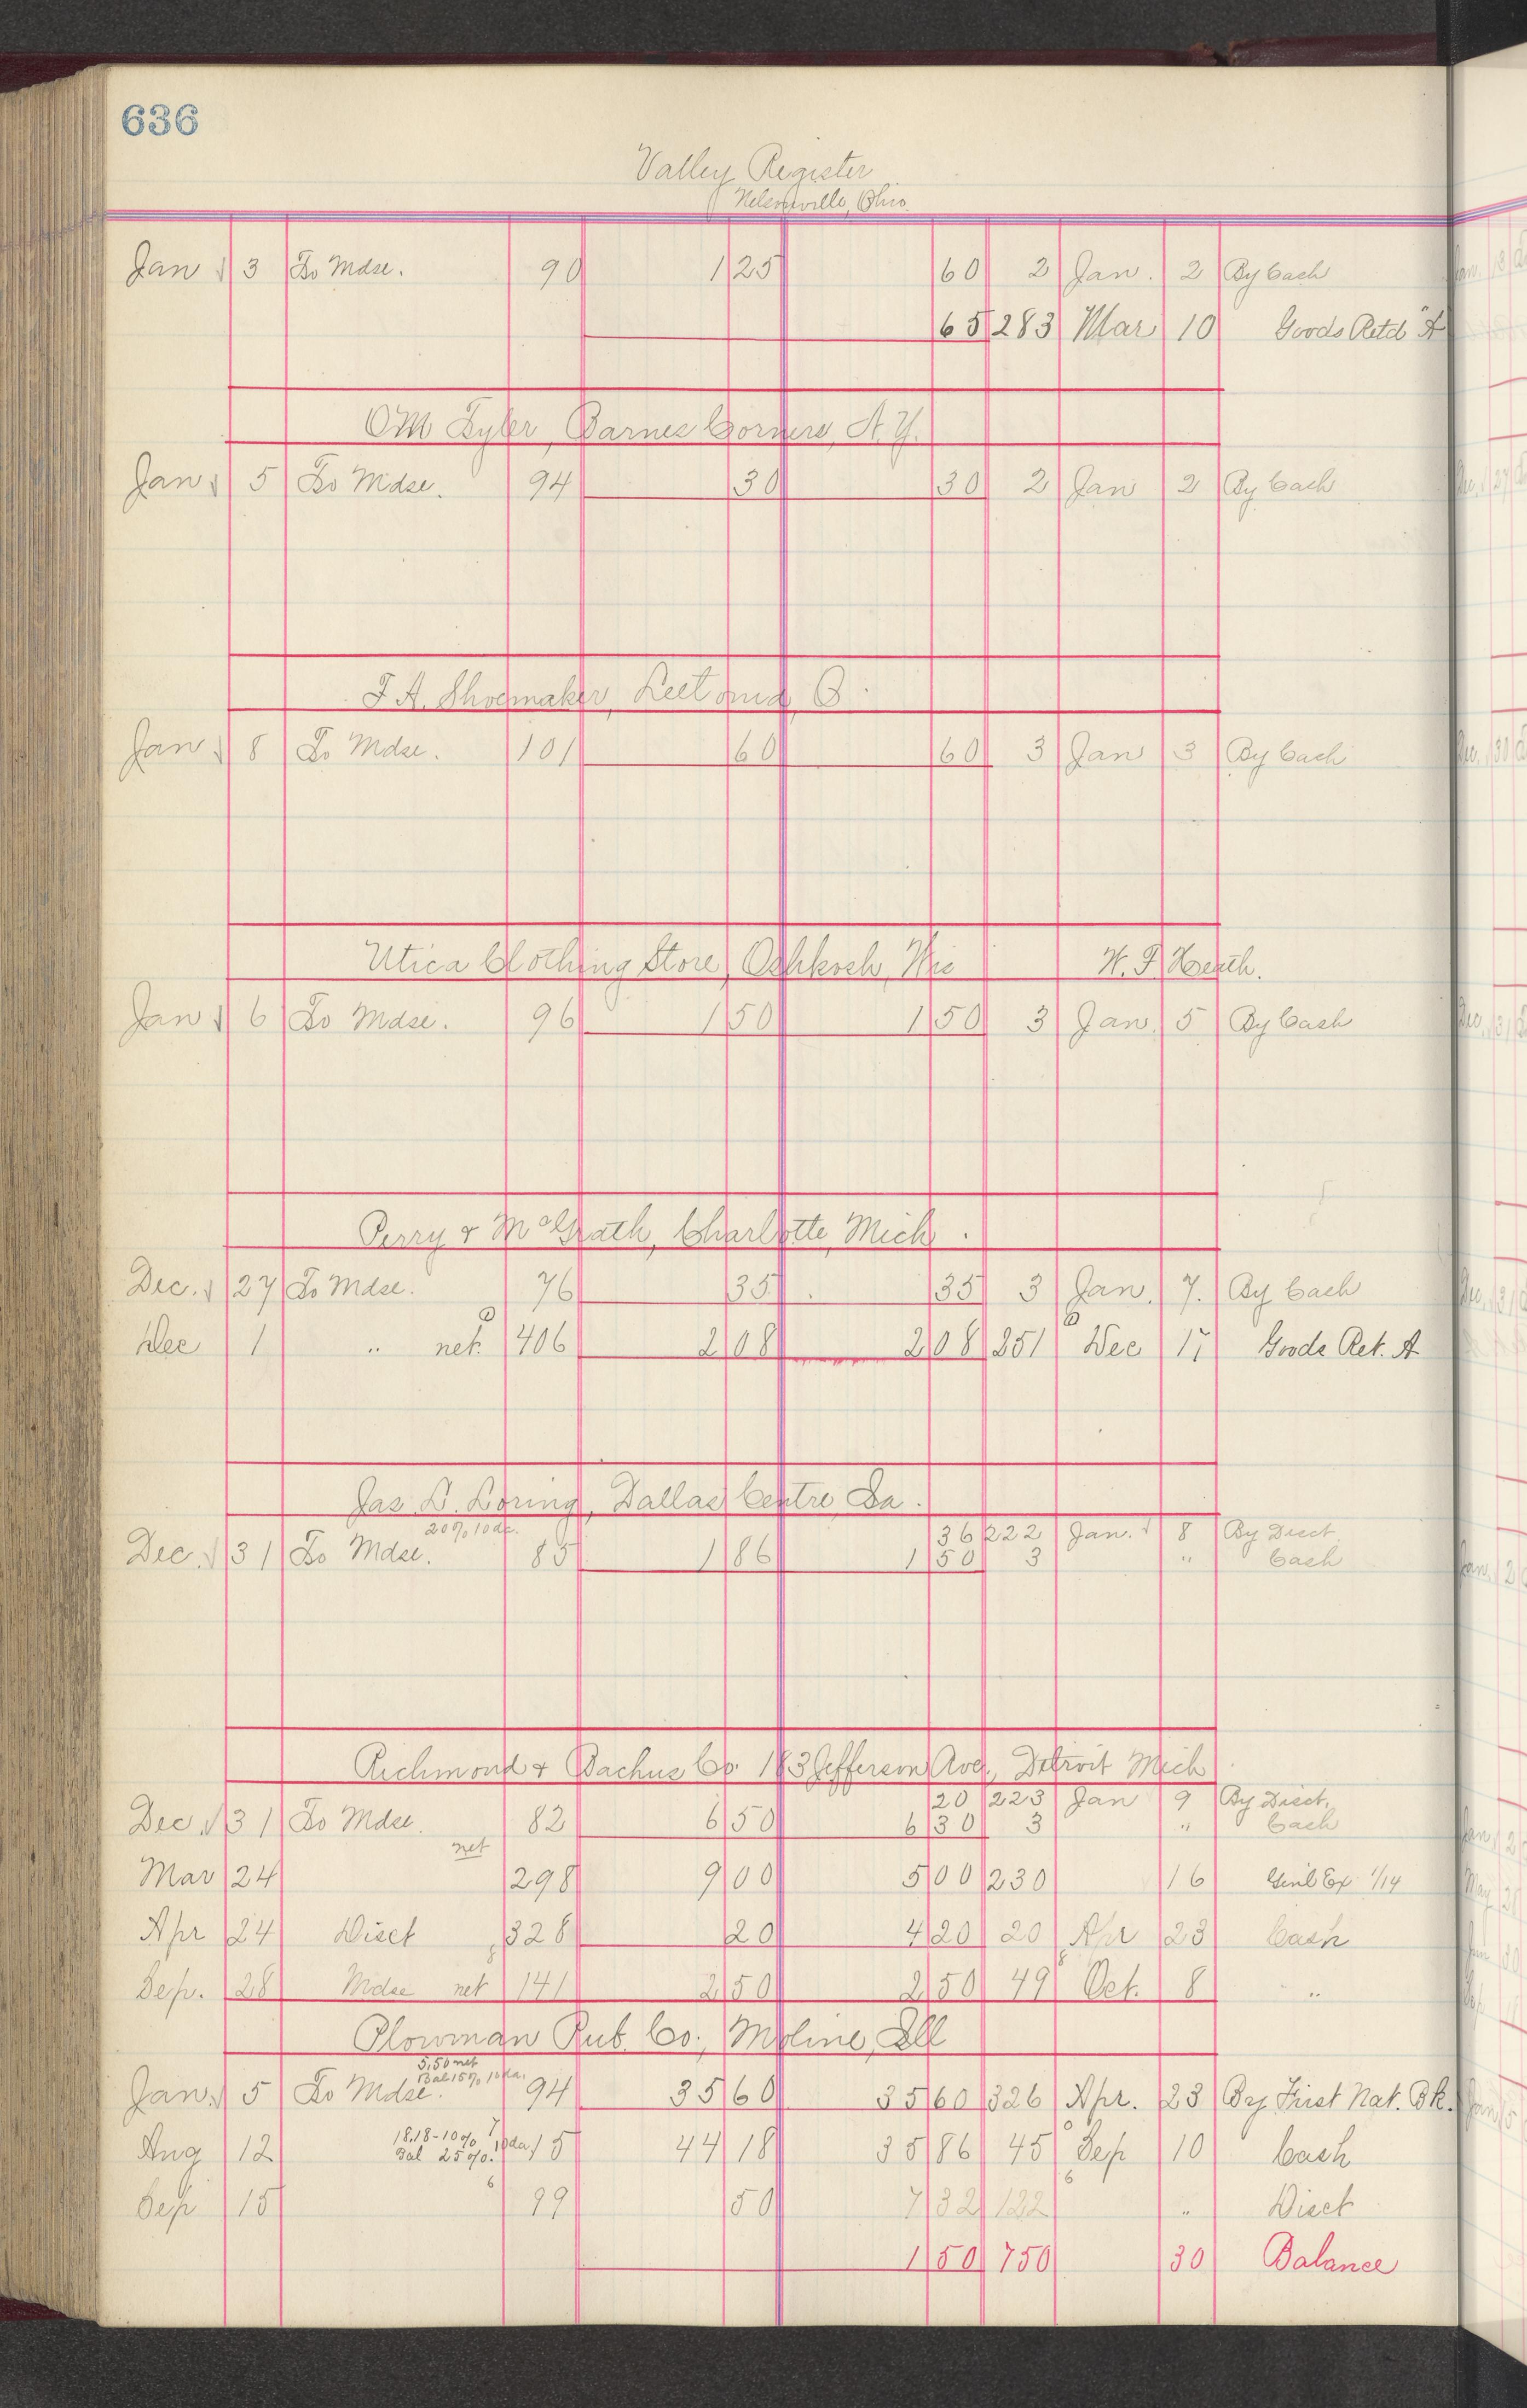 636
Valley Register
Nelsonville, Ohio.
Jan 3 To Mdse. 90 1 25 60 2 Jan. 2 By Cash
65 283 Mar 10 Goods Retd "A
O M Tyler, Barnes Corners, N.Y.
Jan 5 To Mdse. 94 30 30 2 Jan 2 By Cash
F A. Shoemaker, Leetonia, O.
Jan 8 To Mdse. 101 60 60 3 Jan 3 By Cash
Utica Clothing Store, Oshkosh, Wis W. F. Heath.
Jan 6 To Mdse. 96 1 50 1 50 3 Jan. 5 By Cash
Perry & McGrath, Charlotte, Mich.
Dec. 27 To Mdse. 76 35 35 3 Jan. 7. By Cash
Dec 1 " net. 406 2 08 2 08 251 Dec 17 Goods Ret. A
Jas. L. Loring, Dallas Centre, Ia.
20% 10 da. 36 222 Jan. 8 By Disct.
Dec. 31 To Mdse. 85 1 86 1 50 3 " Cash
Richmond & Bachus Co. 183 Jefferson Ave., Detroit Mich
20 223 Jan 9 By Disct.
Dec. 31 To Mdse. 82 6 50 6 30 3 " Cash
net
Mar 24 298 9 00 5 00 230 16 Genl Ex 1/14
Apr 24 Disct 328 20 4 20 20 Apr 23 Cash
Sep. 28 Mdse net 8 141 2 50 2 50 49 Oct. 8 "
Plowman Pub. Co., Moline, Ill
5.50 net
Bal 15% 10 da.
Jan. 5 To Mdse. 94 35 60 35 60 326 Apr. 23 By First Nat. Bk.
18.18-10% 7
Aug 12 Bal 25%. 10 da 15 44 18 35 86 45 Sep 10 Cash
Sep 15 6 99 50 7 32 122 6 " Disct
1 50 750 30 Balance